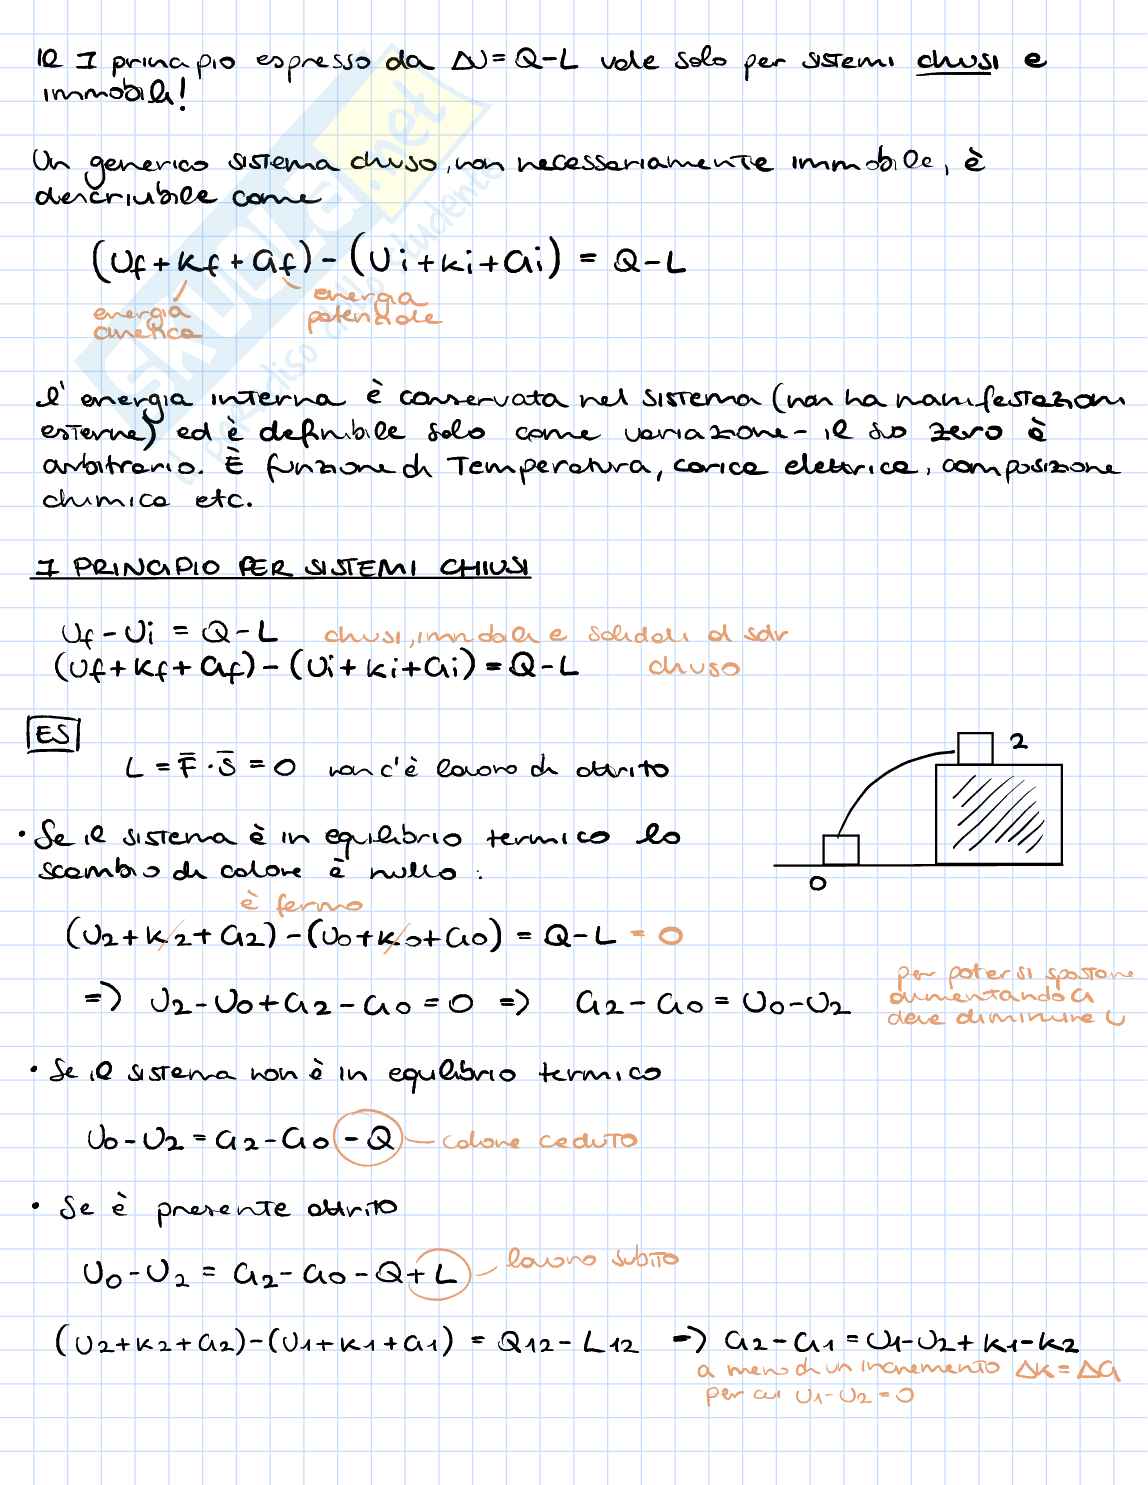 Il I principio espresso da ΔU = Q-L vale solo per sistemi chiusi e
immobili!
Un generico sistema chiuso, non necessariamente immobile, è
descrivibile come
(Uf + Kf + Gf) - (Ui + Ki + Gi) = Q-L
energia cinetica
energia potenziale
L'energia interna è conservata nel sistema (non ha manifestazioni
esterne) ed è definibile solo come variazione - il suo zero è
arbitrario. È funzione di Temperatura, carica elettrica, composizione
chimica etc.
I PRINCIPIO PER SISTEMI CHIUSI
Uf - Ui = Q-L chiusi, immobili e solidali al sdr
(Uf + Kf + Gf) - (Ui + Ki + Gi) = Q-L chiuso
ES
L = F̄ · S̄ = 0 non c'è lavoro di attrito
2
0
• Se il sistema è in equilibrio termico lo
scambio di calore è nullo:
è fermo
(U2 + K2 + G2) - (U0 + K0 + G0) = Q-L = 0
=> U2 - U0 + G2 - G0 = 0 => G2 - G0 = U0 - U2
per potersi spostare
aumentando G
deve diminuire U
• Se il sistema non è in equilibrio termico
U0 - U2 = G2 - G0 - Q calore ceduto
• Se è presente attrito
U0 - U2 = G2 - G0 - Q + L lavoro subito
(U2 + K2 + G2) - (U1 + K1 + G1) = Q12 - L12 => G2 - G1 = U1 - U2 + K1 - K2
a meno di un incremento ΔK = ΔG
per cui U1 - U2 = 0
SKUOLA.net